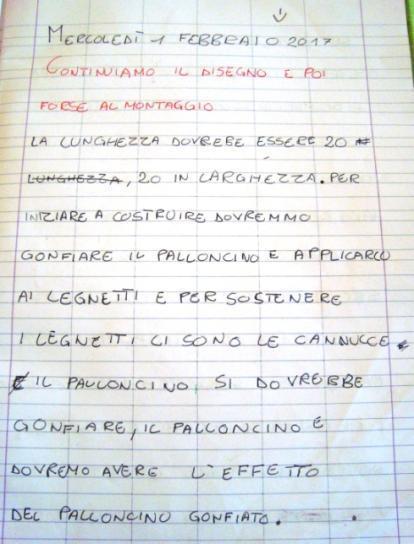 MERCOLEDÌ 1 FEBBRAIO 2017
CONTINUIAMO IL DISEGNO E POI
FORSE AL MONTAGGIO
LA LUNGHEZZA DOVREBE ESSERE 20
LUNGHEZZA, 20 IN LARGHEZZA. PER
INIZIARE A COSTRUIRE DOVREMMO
GONFIARE IL PALLONCINO E APPLICARLO
AI LEGNETTI E PER SOSTENERE
I LEGNETTI CI SONO LE CANNUCCE
E IL PALLONCINO SI DOVREBBE
GONFIARE, IL PALLONCINO E
DOVREMO AVERE L'EFFETTO
DEL PALLONCINO GONFIATO.